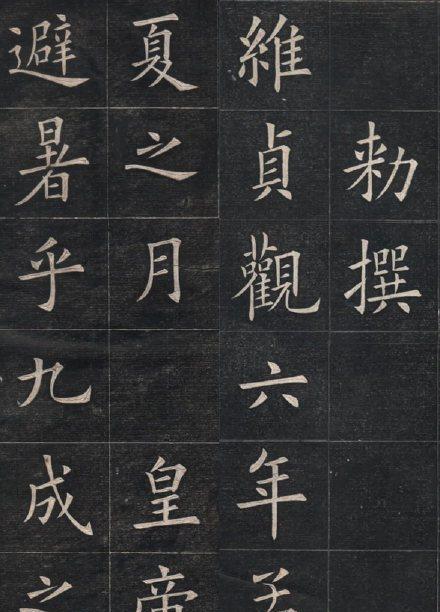 勑撰
維貞觀六年孟
夏之月 皇帝
避暑乎九成之